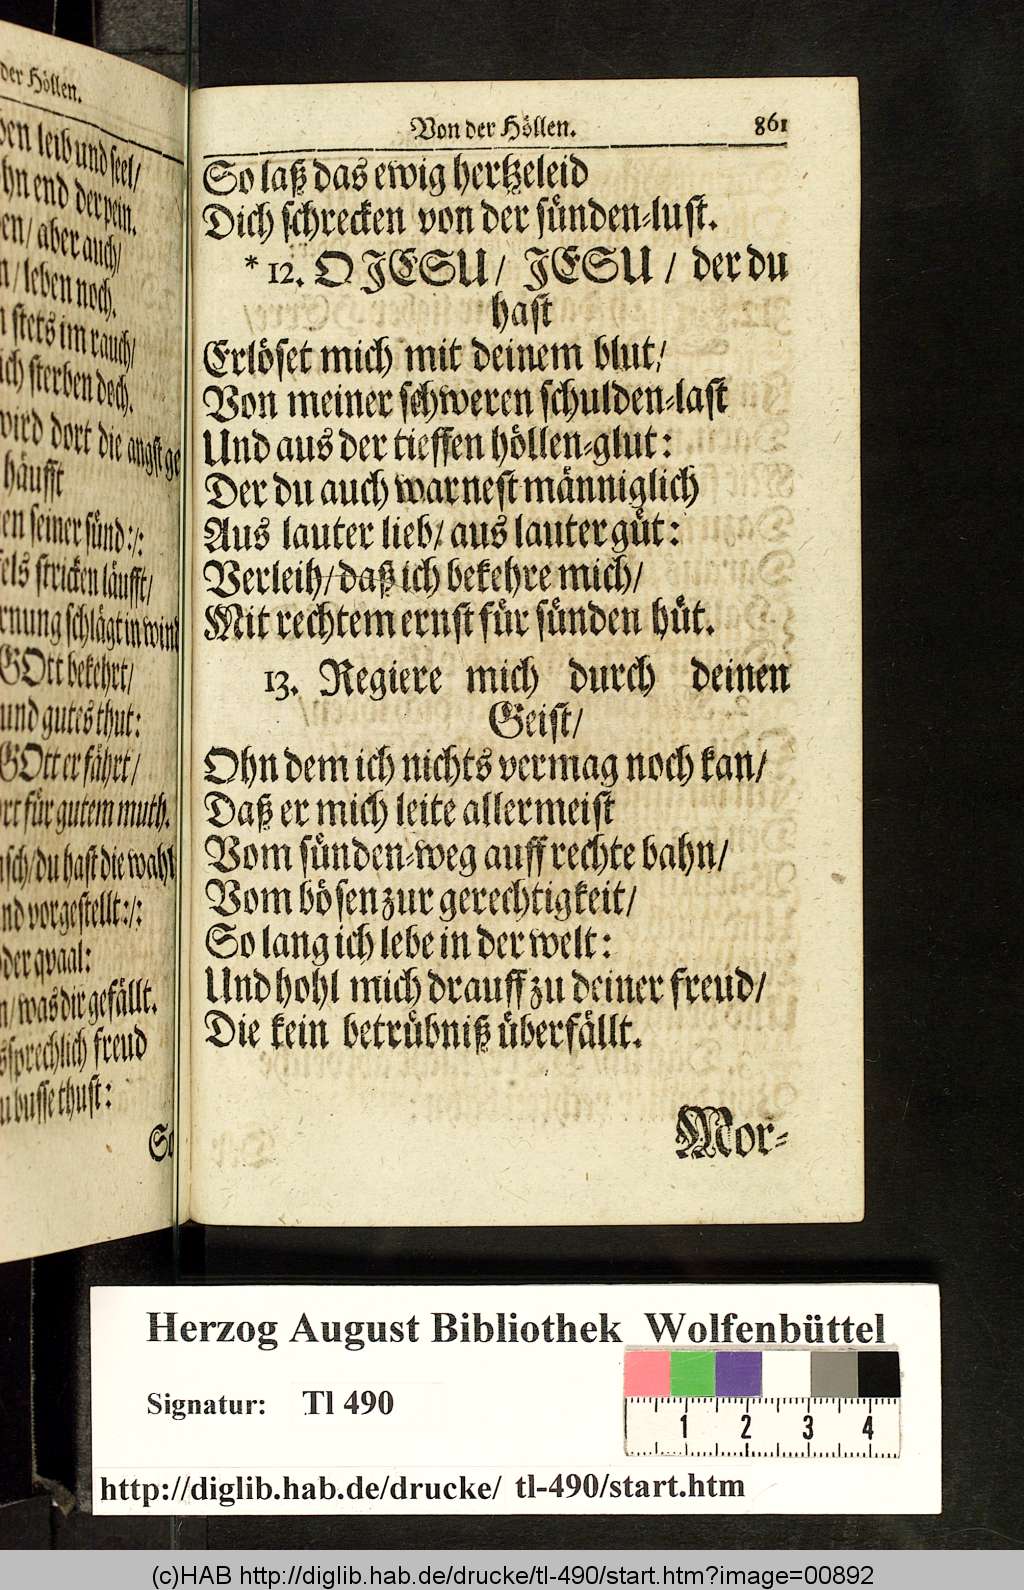 der Höllen.
leib und seel/
end der pein.
aber auch/
leben noch.
stets im rauch/
sterben doch.
wird dort die angst ge
häufft
seiner sünd:/:
stricken läufft/
schlägt in wind
GOtt bekehrt/
und gutes thut:
GOtt erfährt/
für gutem muth.
du hast die wahl
vorgestellt:/:
der qvaal:
was dir gefällt.
freud
busse thust:
So
Von der Höllen. 861
So laß das ewig hertzeleid
Dich schrecken von der sünden-lust.
* 12. O JESU/ JESU / der du
hast
Erlöset mich mit deinem blut/
Von meiner schweren schulden-last
Und aus der tieffen höllen-glut:
Der du auch warnest männiglich
Aus lauter lieb/ aus lauter güt:
Verleih/ daß ich bekehre mich/
Mit rechtem ernst für sünden hüt.
13. Regiere mich durch deinen
Geist/
Ohn dem ich nichts vermag noch kan/
Daß er mich leite allermeist
Vom sünden-weg auff rechte bahn/
Vom bösen zur gerechtigkeit/
So lang ich lebe in der welt:
Und hohl mich drauff zu deiner freud/
Die kein betrübniß überfällt.
Mor-
Herzog August Bibliothek Wolfenbüttel
Signatur: Tl 490
1 2 3 4
http://diglib.hab.de/drucke/ tl-490/start.htm
(c)HAB http://diglib.hab.de/drucke/tl-490/start.htm?image=00892